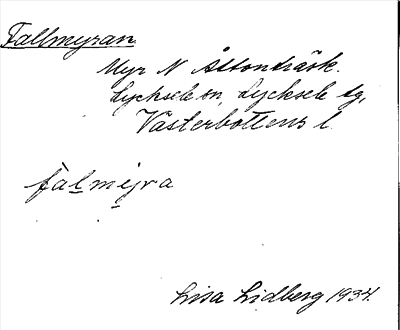 Fallmyran
Myr N Åttonträsk.
Lycksele sn, Lycksele tg,
Västerbottens l.
fàlmejra
Lisa Lidberg 1934.